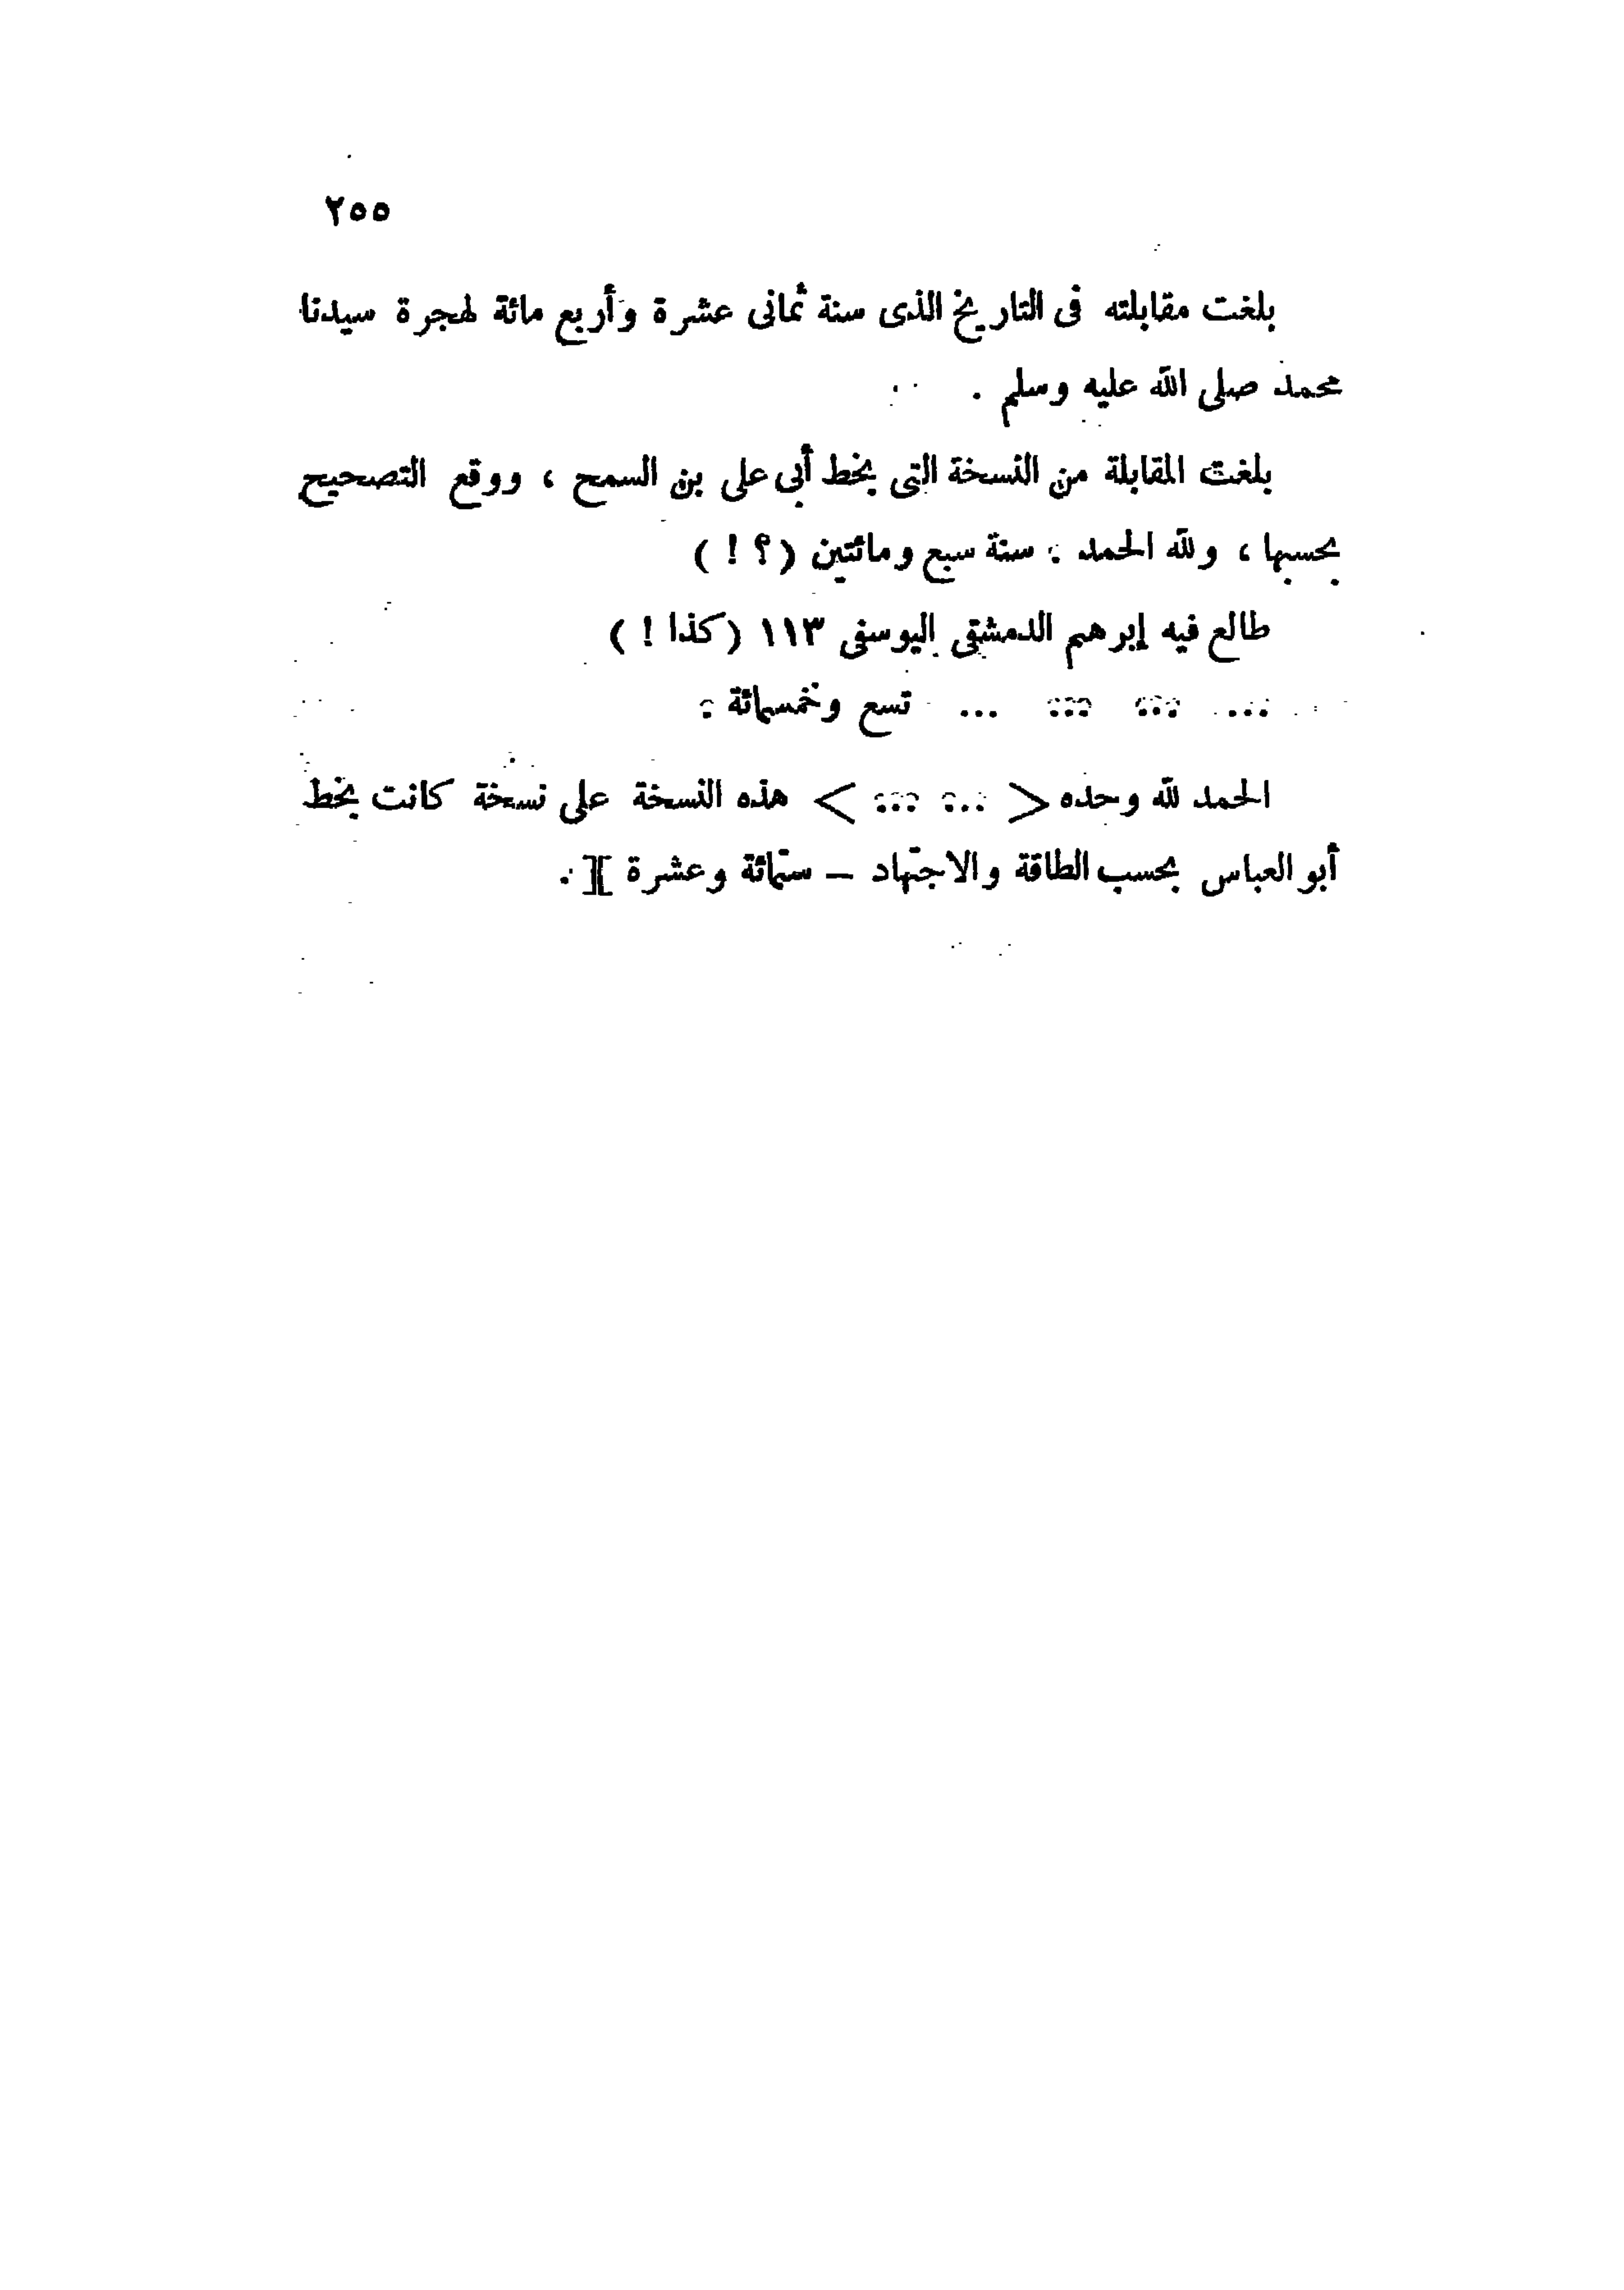 ٢٥٥
بلغت مقابلته فى التاريخ الذى سنة ثمانى عشرة وأربع مائة لهجرة سيدنا
محمد صلى الله عليه وسلم .
بلغت المقابلة من النسخة التى بخط أبى على بن السمح ، ووقع التصحيح
بحسبها ، ولله الحمد . سنة سبع ومائتين ( ؟ ! )
طالع فيه إبرهيم الدمشقى اليوسفى ١١٣ ( كذا ! )
... ... ... ... تسع وخمسمائة .
الحمد لله وحده < ... ... > هذه النسخة على نسخة كانت بخط
أبو العباس بحسب الطاقة والاجتهاد – ستمائة وعشرة ][ .